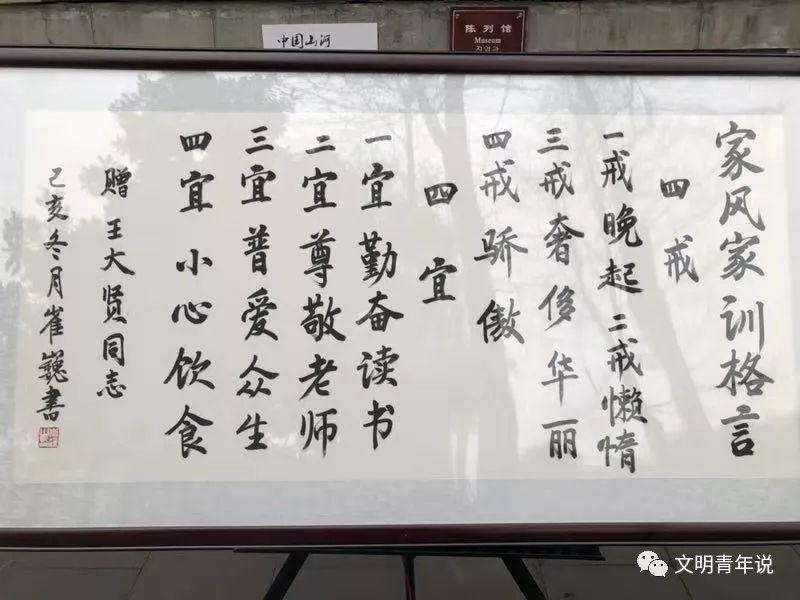 中国山河
陈列馆
Museum
진열관
家风家训格言
四戒
一戒晚起 二戒懒惰
三戒奢侈华丽
四戒骄傲
四宜
一宜勤奋读书
二宜尊敬老师
三宜普爱众生
四宜小心饮食
赠王大贤同志
己亥冬月崔巍书
文明青年说